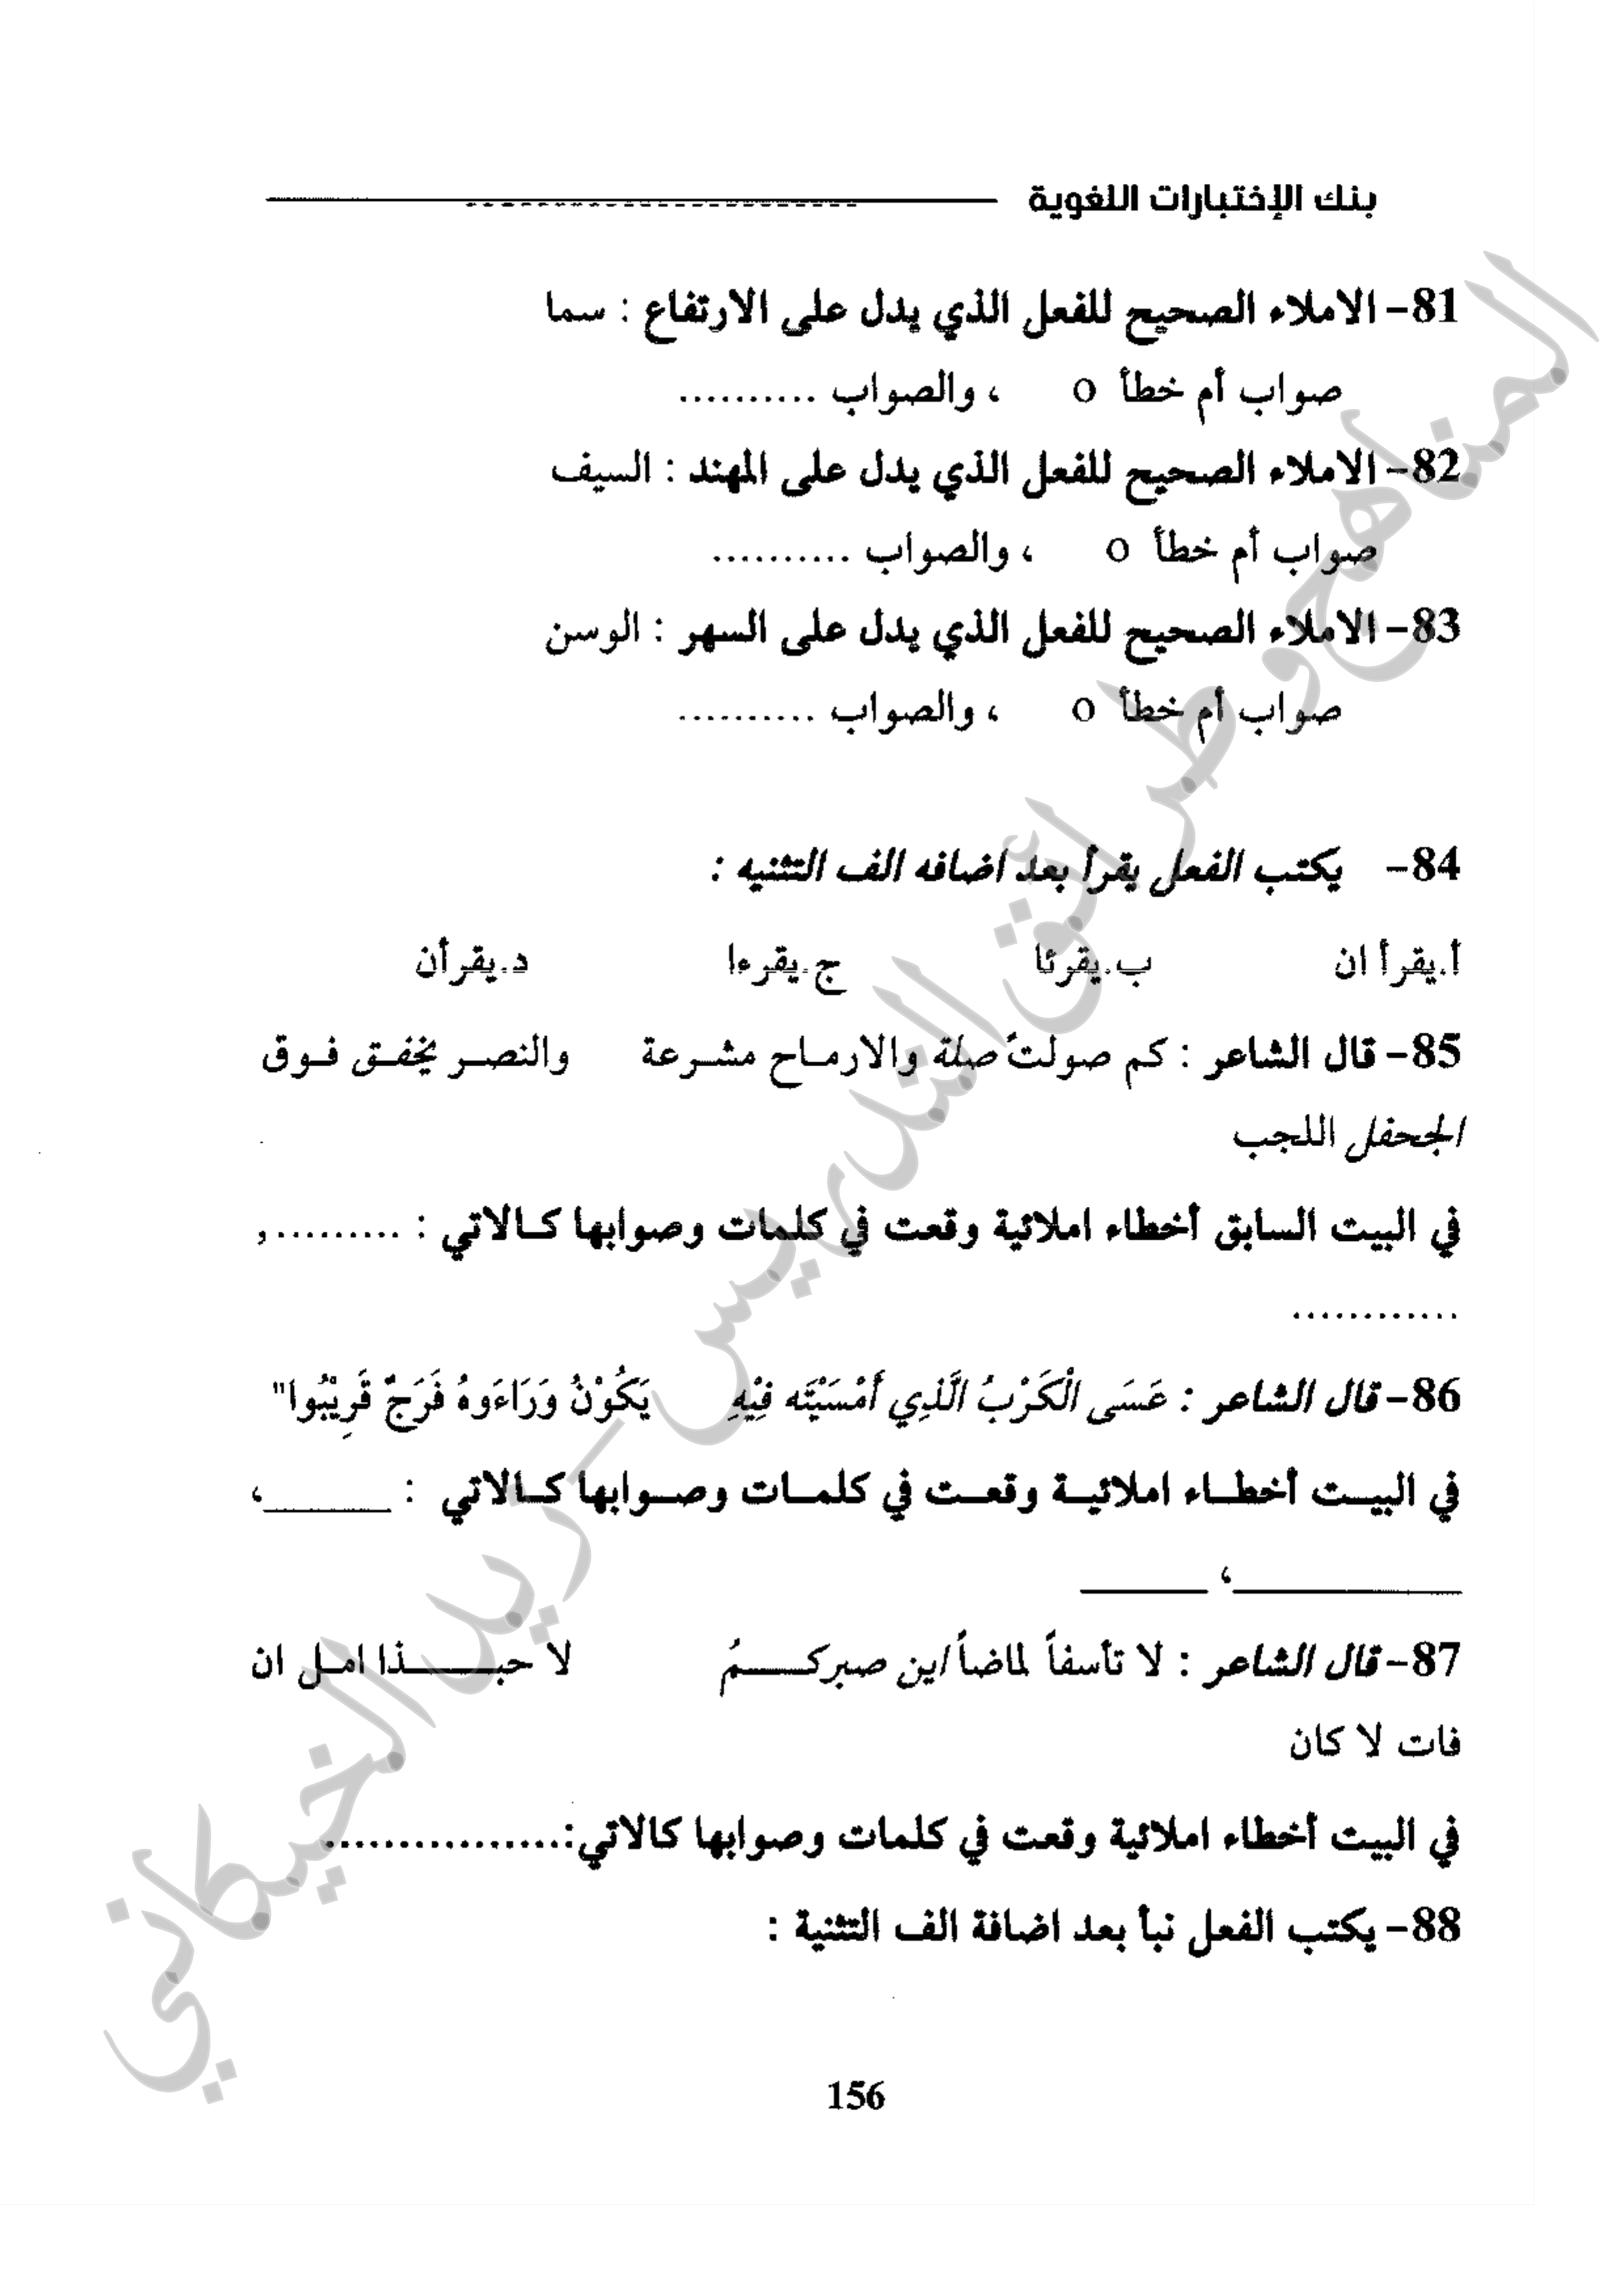 بنك الإختبارات اللغوية
81- الاملاء الصحيح للفعل الذي يدل على الارتفاع : سما
صواب أم خطأ o ، والصواب ..........
82- الاملاء الصحيح للفعل الذي يدل على المهند : السيف
صواب أم خطأ o ، والصواب ..........
83- الاملاء الصحيح للفعل الذي يدل على السهر : الوسن
صواب أم خطأ o ، والصواب ..........
84- يكتب الفعل يقرأ بعد اضافه الف التثنيه :
أ.يقرأ ان ب.يقرئا ج.يقرءا د.يقرأن
85- قال الشاعر : كم صولتُ صلة والارماح مشرعة والنصر يخفق فوق
الجحفل اللجب
في البيت السابق أخطاء املائية وقعت في كلمات وصوابها كالاتي : .........,
............
86- قال الشاعر : عَسَى الْكَرْبُ الَّذِي أَمْسَيْتَه فِيْهِ يَكُوْنُ وَرَاءَوهُ فَرَجٌ قَرِيْبُوا"
في البيت أخطاء املائية وقعت في كلمات وصوابها كالاتي : ______،
__________، ______
87- قال الشاعر : لا تأسفاً لماضاً اين صبركمُ لا حبذا امل ان
فات لا كان
في البيت أخطاء املائية وقعت في كلمات وصوابها كالاتي:................
88- يكتب الفعل نبأ بعد اضافة الف التثنية :
156
المناهج وطرائق التدريس - ريد الخيكاني